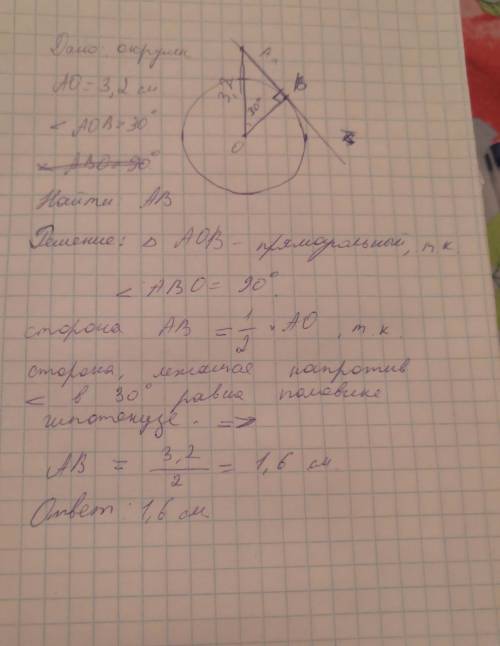 Дано: окружн
АО = 3,2 см
< АОВ = 30°
< АВО = 90°
Найти АВ
A
3,2
30°
B
O
Решение: △ АОВ - прямоугольный, т.к.
< АВО = 90°.
сторона АВ = 1/2 · АО, т.к.
сторона, лежащая напротив
< в 30° равна половине
гипотенузе. =>
АВ = 3,2/2 = 1,6 см.
Ответ: 1,6 см